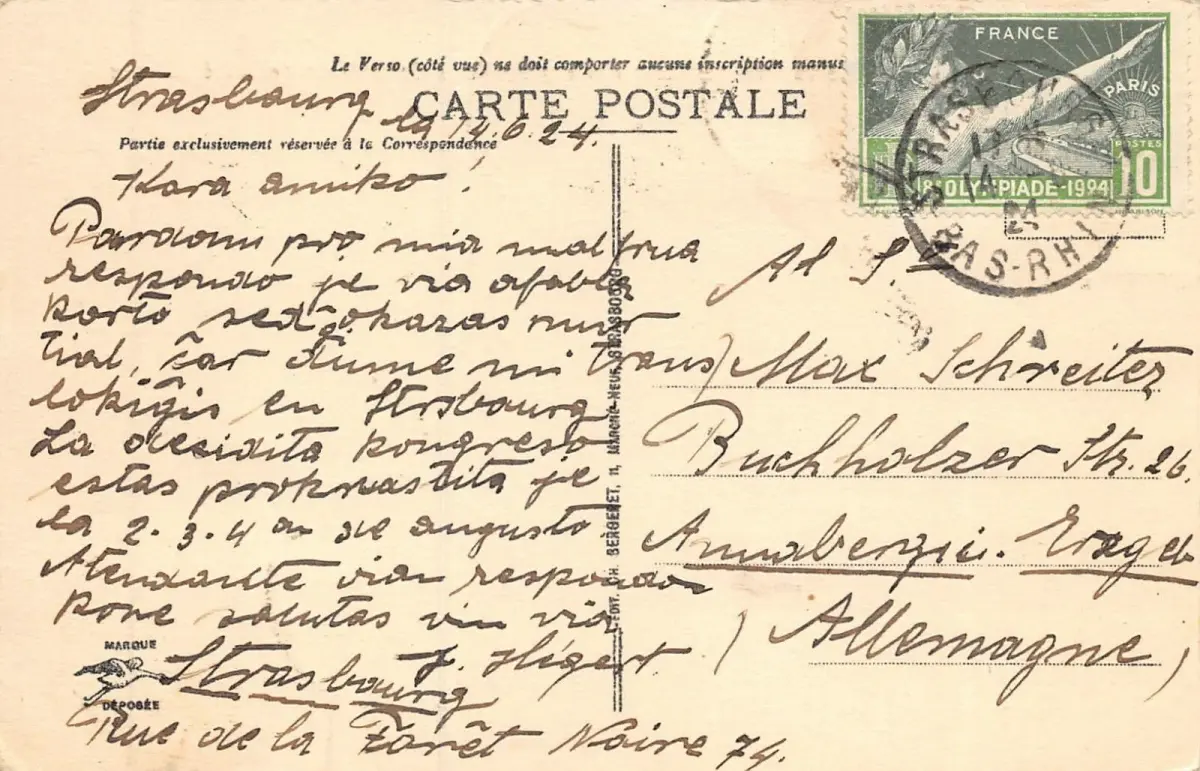 Le Verso (côté vue) ne doit comporter aucune inscription manus
CARTE POSTALE
Strasbourg
la 14.6.24.
Partie exclusivement réservée à la Correspondance
Kara amiko!
Pardonu pro mia malfrua
respondo je via afabla
karto sed okazas nur
tial, ĉar dume mi trans
lokiĝis en Strsbourg
La desidita kongreso
estas prokrastita je
la 2. 3. 4 an de augusto
Atendante vian respondon
kore salutas vin via
J. Hégert
Strasbourg
Rue de la Forêt Noire 74.
MARQUE
DÉPOSÉE
ÉDIT. CH. BERGERET, 11, MAROHÉ-NEUF, STRASBOURG
FRANCE
PARIS
POSTES
10
8e OLYMPIADE-1924
STRASBOURG
14
24
BAS-RHIN
Al S.
Max Schreiter
Buchholzer Str. 26.
Annaberg i. Erzgeb
Allemagne